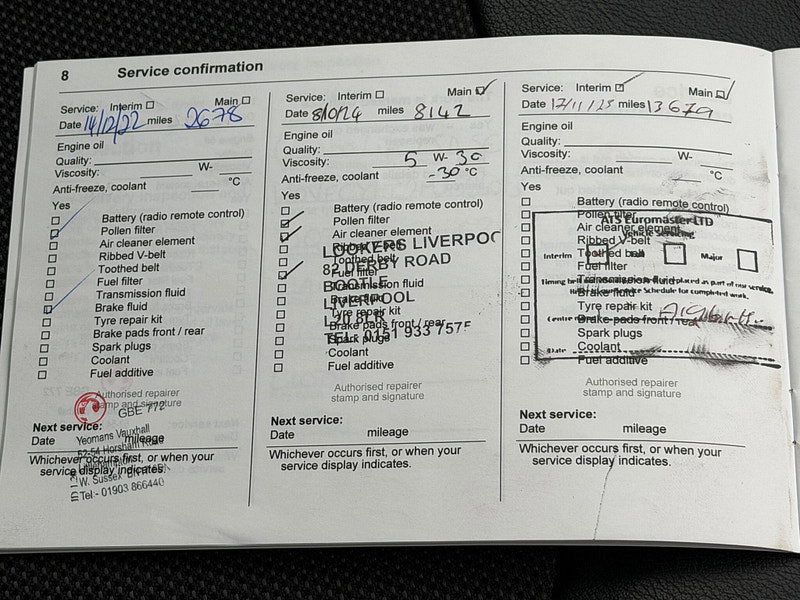 8 Service confirmation
Service: Interim Main
Date 14/12/22 miles 2678
Engine oil
Quality:
Viscosity: W-
Anti-freeze, coolant °C
Yes
Battery (radio remote control)
Pollen filter
Air cleaner element
Ribbed V-belt
Toothed belt
Fuel filter
Transmission fluid
Brake fluid
Tyre repair kit
Brake pads front / rear
Spark plugs
Coolant
Fuel additive
Authorised repairer
stamp and signature
GBE 772
Next service:
Date mileage
Yeomans Vauxhall
52-54 Horsham
W. Sussex
Tel:- 01903 866440
Whichever occurs first, or when your
service display indicates.
Service: Interim Main
Date miles 8142
Engine oil
Quality:
Viscosity: 5 W- 30
Anti-freeze, coolant -30 °C
Yes
Battery (radio remote control)
Pollen filter
Air cleaner element
Ribbed V-belt
Toothed belt
Fuel filter
Transmission fluid
Brake fluid
Tyre repair kit
Brake pads front / rear
Spark plugs
Coolant
Fuel additive
LOOKERS LIVERPOO
82 DERBY ROAD
BOOTLE
LIVERPOOL
L20 8LR
TEL: 0151 933 757
Authorised repairer
stamp and signature
Next service:
Date mileage
Whichever occurs first, or when your
service display indicates.
Service: Interim Main
Date 17/11/25 miles 13679
Engine oil
Quality:
Viscosity: W-
Anti-freeze, coolant °C
Yes
Battery (radio remote control)
Pollen filter
Air cleaner element
Ribbed V-belt
Toothed belt
Fuel filter
Transmission fluid
Brake fluid
Tyre repair kit
Brake pads front / rear
Spark plugs
Coolant
Fuel additive
ATS Euromaster LTD
Vehicle Servicing
Interim Full Major
Timing belt placed as part of our service.
Service Schedule for completed work.
Centre
Date
Authorised repairer
stamp and signature
Next service:
Date mileage
Whichever occurs first, or when your
service display indicates.